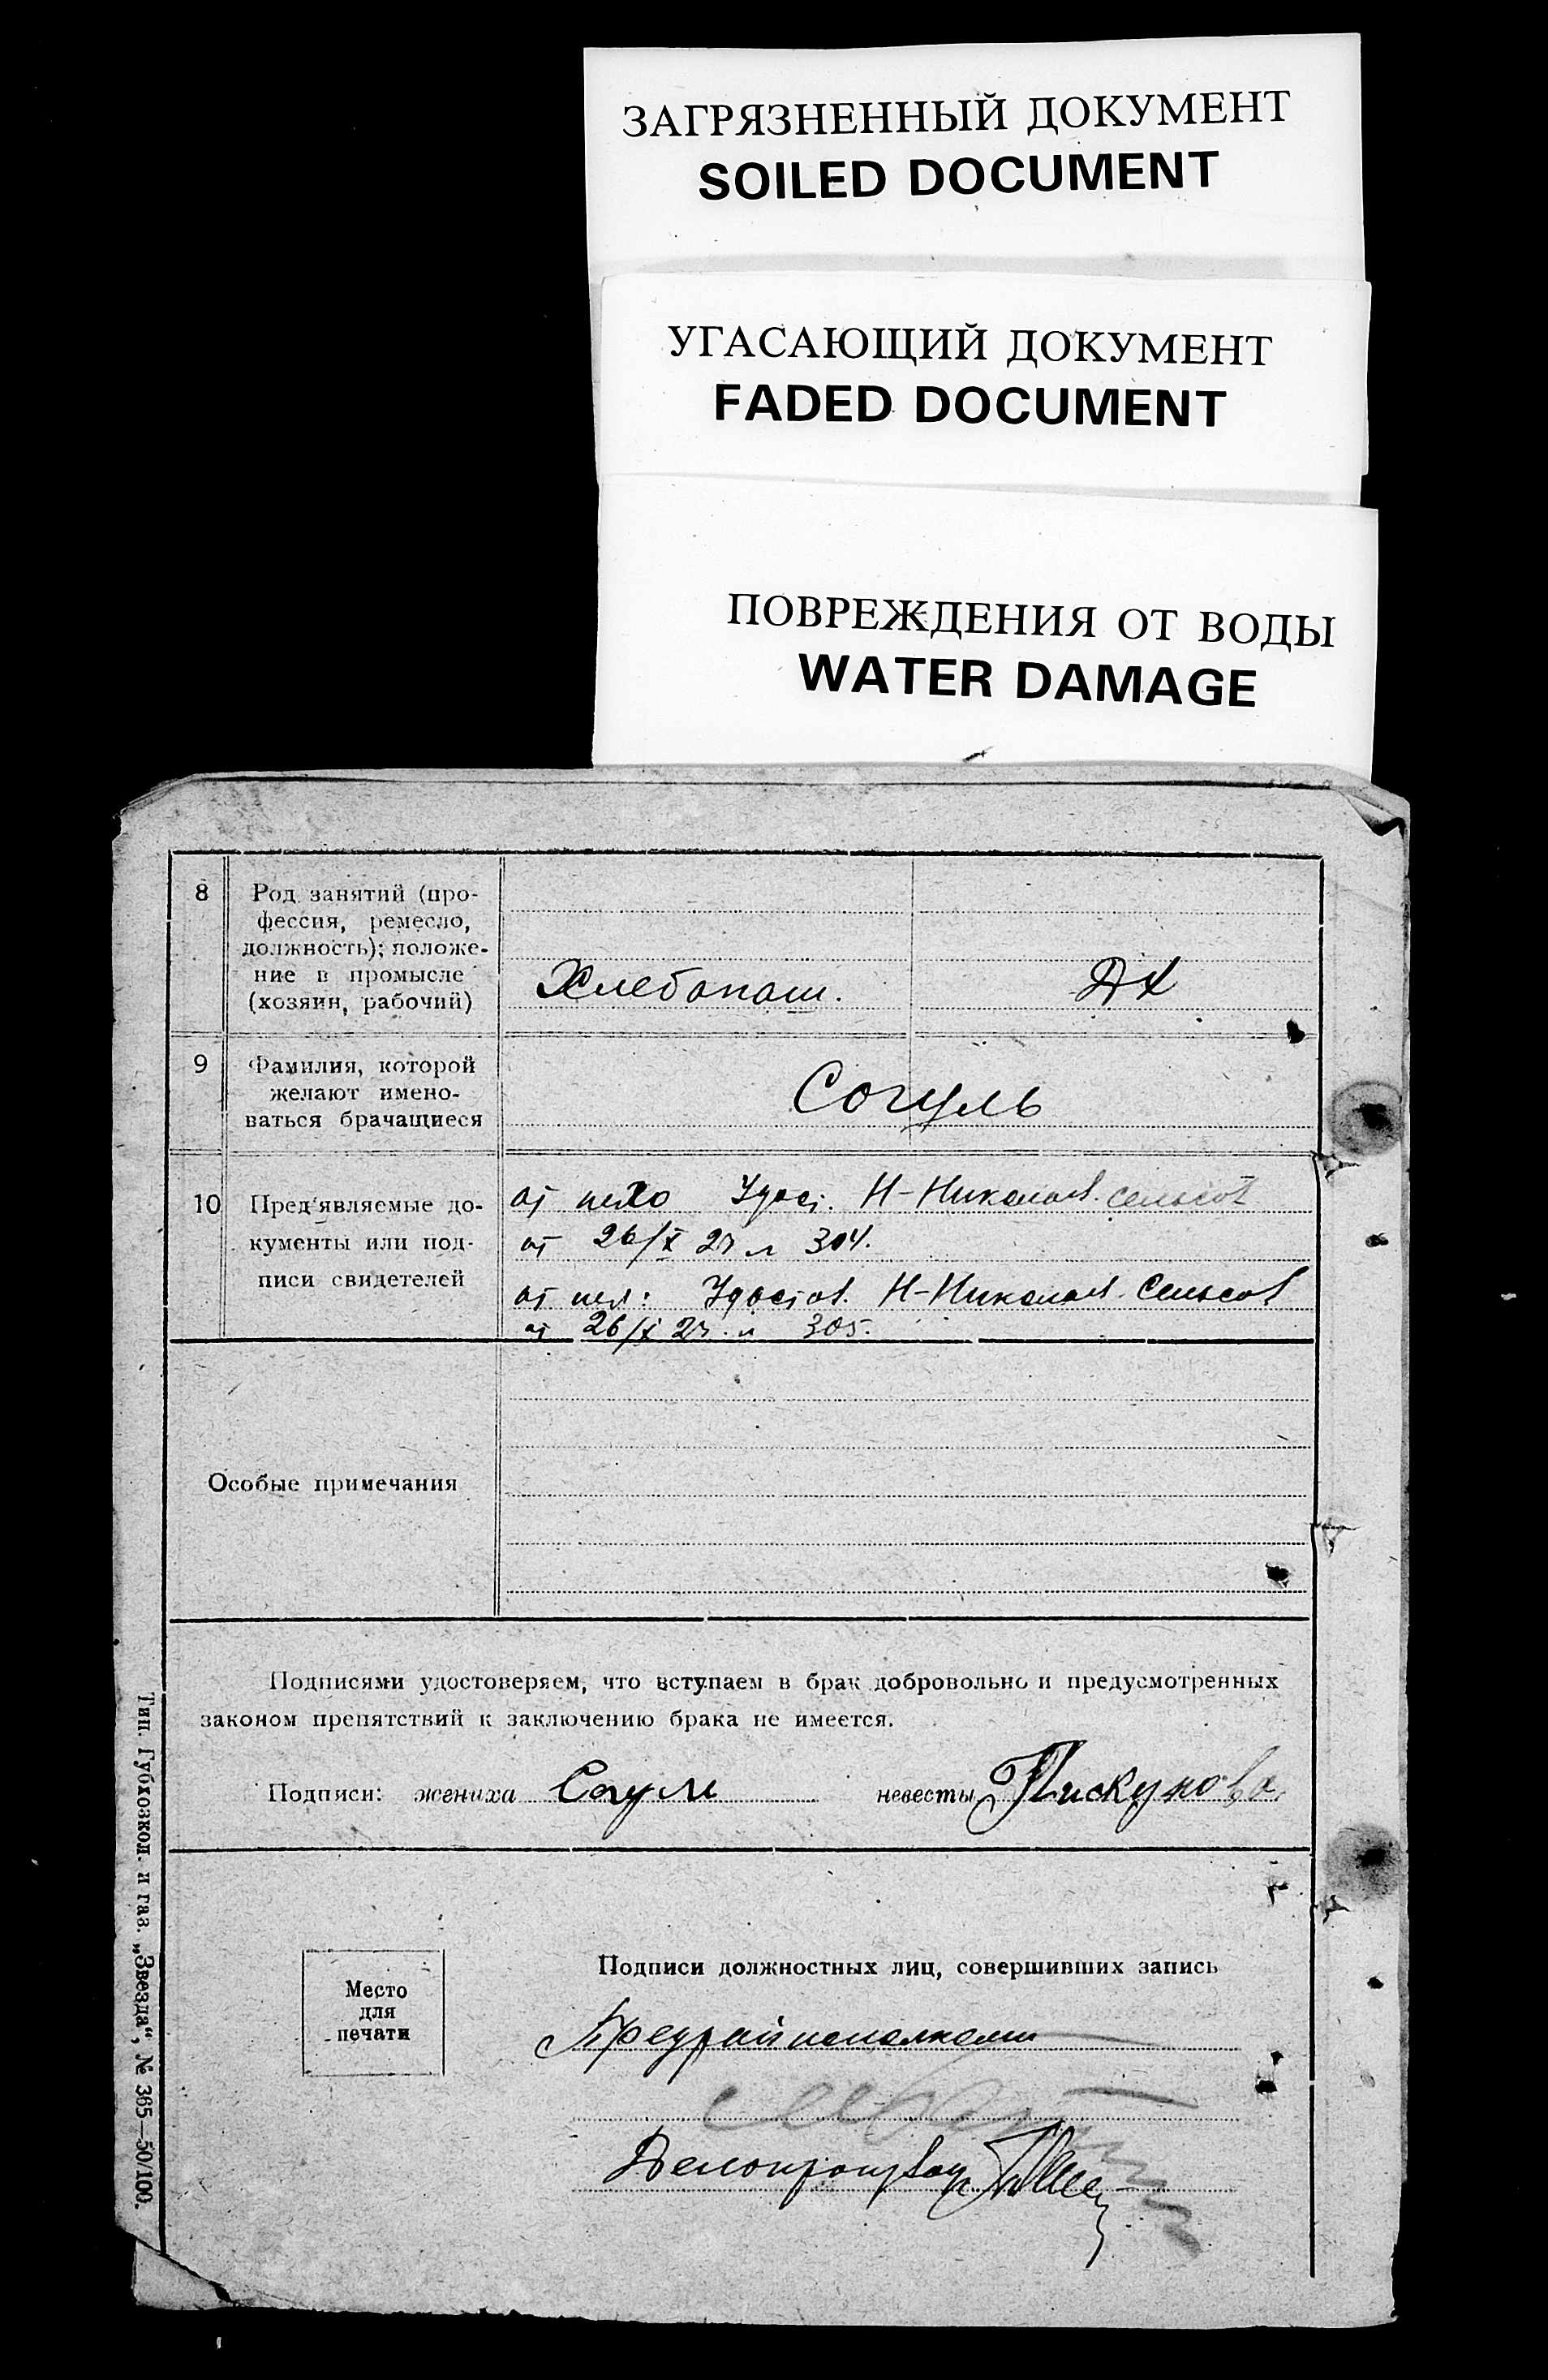 ЗАГРЯЗНЕННЫЙ ДОКУМЕНТ
SOILED DOCUMENT
УГАСАЮЩИЙ ДОКУМЕНТ
FADED DOCUMENT
ПОВРЕЖДЕНИЯ ОТ ВОДЫ
WATER DAMAGE
8
Род занятий (про-
фессия, ремесло,
должность); положе-
ние в промысле
(хозяин, рабочий)
Хлебопаш.
ДХ
9
Фамилия, которой
желают имено-
ваться брачащиеся
Согуль
10
Пред'являемые до-
кументы или под-
писи свидетелей
от Удост. Н-Николаев. сельсов
от 26/X 27 № 304.
от Удостов. Н-Николаев. Сельсов
от 26/X 27. № 305.
Особые примечания
Подписями удостоверяем, что вступаем в брак добровольно и предусмотренных
законом препятствий к заключению брака не имеется.
Подписи: жениха Согул невесты Пискунова
Место
для
печати
Подписи должностных лиц, совершивших запись
Предрайисполкома
Делопроизвод
Тип. Губхозкол. и газ. „Звезда“, № 365—50/100.